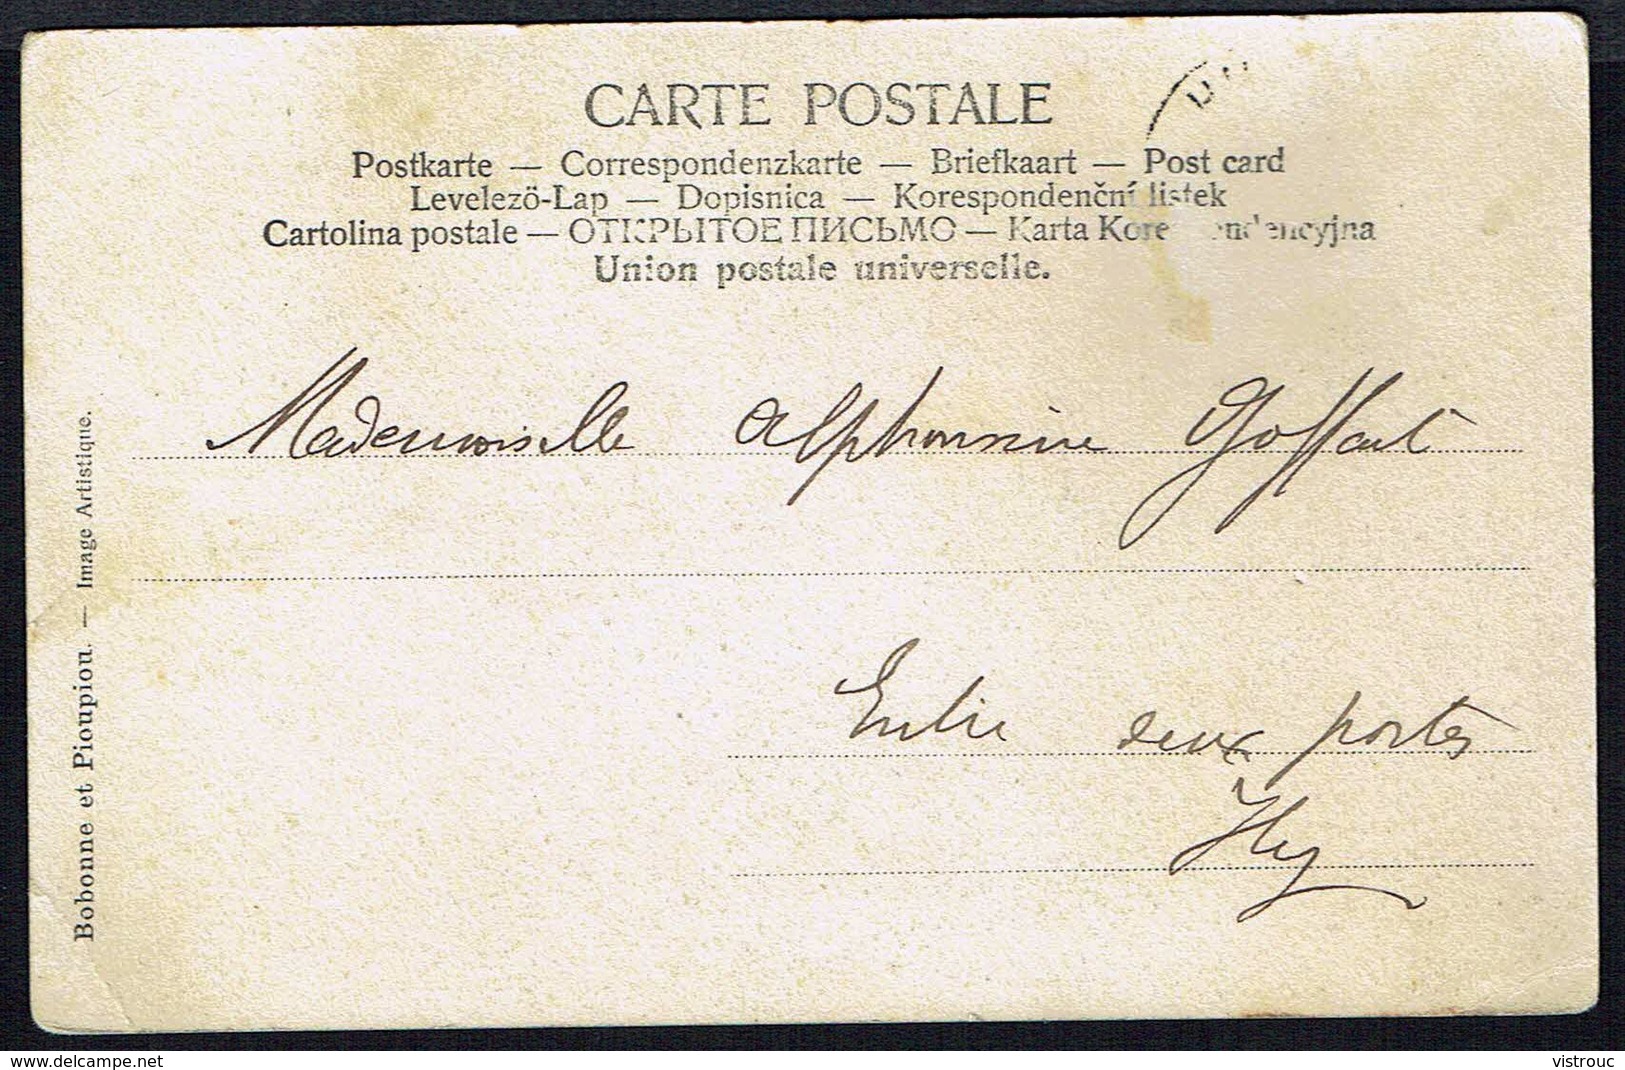 CARTE POSTALE
Postkarte — Correspondenzkarte — Briefkaart — Post card
Levelezö-Lap — Dopisnica — Korespondenční lístek
Cartolina postale — ОТКРЫТОЕ ПИСЬМО — Karta Korespondencyjna
Union postale universelle.
Mademoiselle Alphonsine Goffart
Entre deux portes
Huy
Bobonne et Pioupiou. — Image Artistique.
delcampe.net
vistrouc